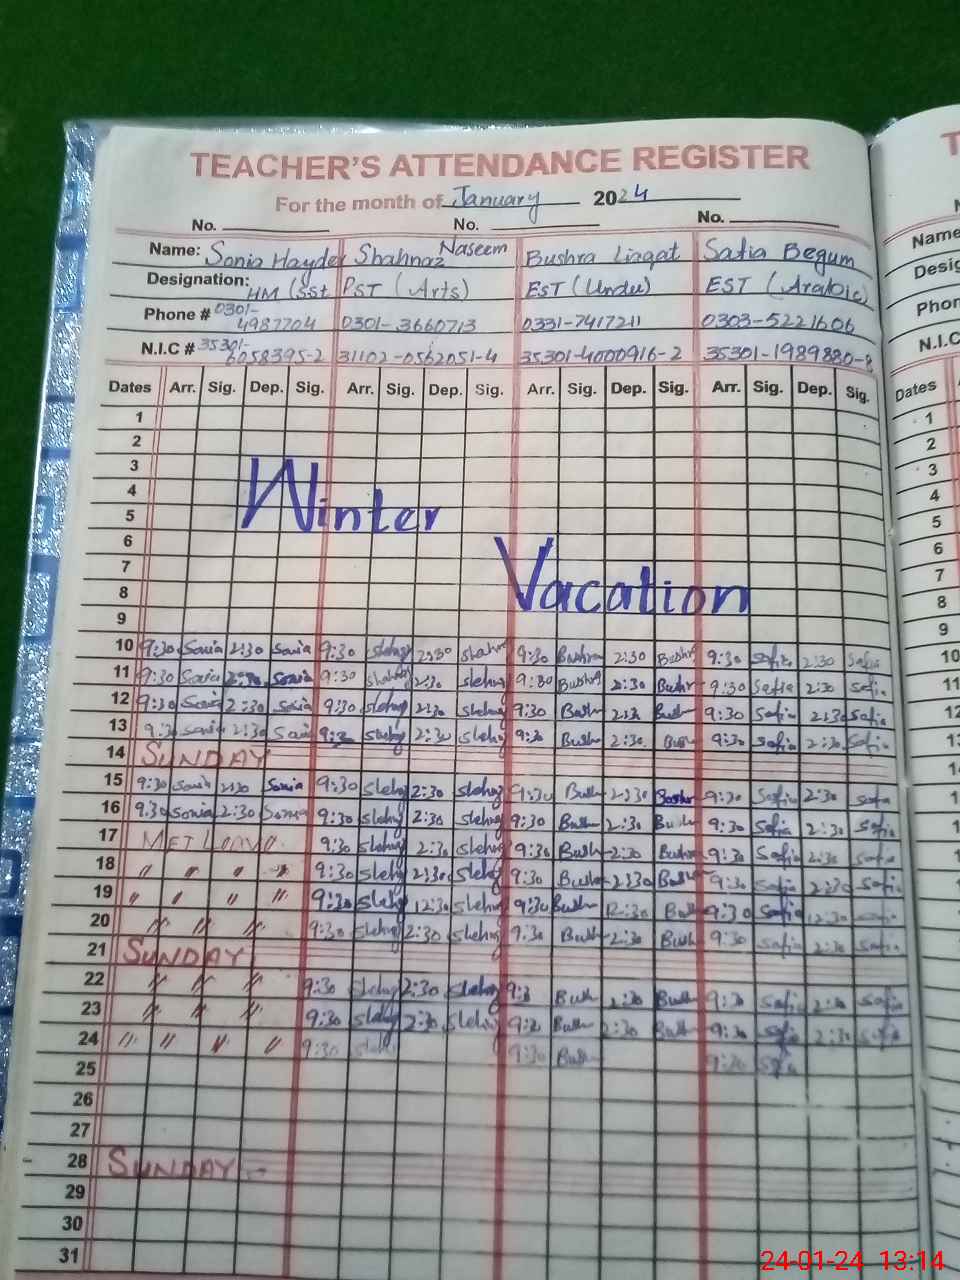 TEACHER'S ATTENDANCE REGISTER
For the month of January 2024
No. No. No.
Name: Sonia Hayder Shahnaz Naseem Bushra Liaqat Safia Begum
Designation: HM (SST PST (Arts) EST (Urdu) EST (Arabic)
Phone # 0301-4987704 0301-3660713 0331-7417211 0303-5221606
N.I.C # 35301-6058395-2 31102-0562051-4 35301-4000916-2 35301-1989880-8
Dates Arr. Sig. Dep. Sig. Arr. Sig. Dep. Sig. Arr. Sig. Dep. Sig. Arr. Sig. Dep. Sig. Dates
1 1
2 2
3 3
4 Winter 4
5 5
6 6
7 Vacation 7
8 8
9 9
10 9:30 Sonia 2:30 Sonia 9:30 2:30 9:30 Bushra 2:30 Bushra 9:30 Safia 2:30 Safia 10
11 9:30 Sonia 2:30 Sonia 9:30 2:30 9:30 Bushra 2:30 Bushr 9:30 Safia 2:30 Safia 11
12 9:30 Sonia 2:30 Sonia 9:30 2:30 9:30 Bush 2:30 Bush 9:30 Safia 2:30 Safia 12
13 9:30 Sonia 2:30 Sonia 9:30 2:30 9:30 Bush 2:30 Bush 9:30 Safia 2:30 Safia
14 SUNDAY
15 9:30 Sonia 2:30 Sonia 9:30 2:30 9:30 Bush 2:30 Bushr 9:30 Safia 2:30 Safia
16 9:30 Sonia 2:30 Sonia 9:30 2:30 9:30 Bush 2:30 Bush 9:30 Safia 2:30 Safia
17 9:30 2:30 9:30 Bush 2:30 Bushra 9:30 Safia 2:30 Safia
18 〃 〃 〃 〃 9:30 2:30 9:30 Bush 2:30 Bush 9:30 Safia 2:30 Safia
19 〃 〃 〃 〃 9:30 12:30 9:30 Bush 12:30 Bush 9:30 Safia 12:30 Safia
20 〃 〃 〃 9:30 2:30 9:30 Bush 2:30 Bush 9:30 Safia 2:30 Safia
21 SUNDAY
22 〃 〃 〃 9:30 2:30 9:3 Bush 2:30 Bush 9:30 Safia 2:30 Safia
23 〃 〃 〃 9:30 2:30 9:30 Bush 2:30 Bush 9:30 Safia 2:30 Safia
24 〃 〃 〃 〃 9:30 9:30 Bush 9:30 Safia
25
26
27
28 SUNDAY
29
30
31
24-01-24 13:14